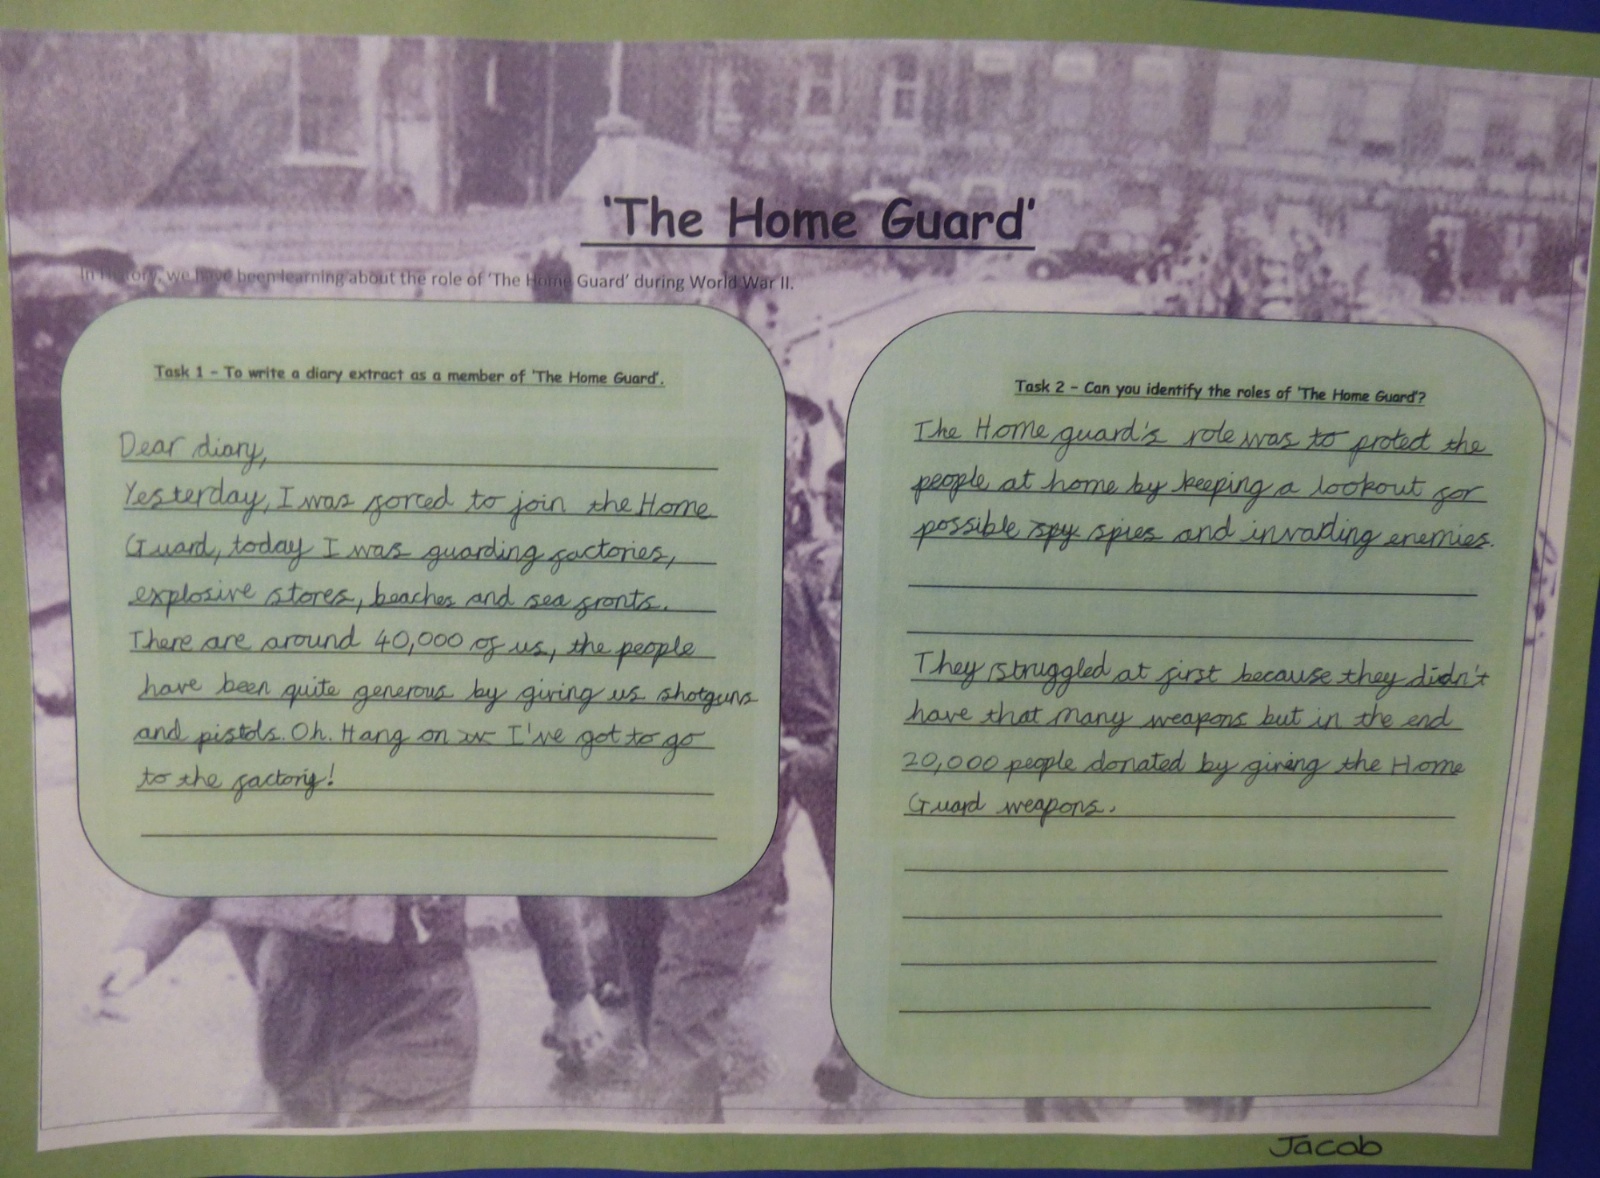 'The Home Guard'
In History, we have been learning about the role of 'The Home Guard' during World War II.
Task 1 - To write a diary extract as a member of 'The Home Guard'.
Dear diary,
Yesterday, I was forced to join the Home
Guard, today I was guarding factories,
explosive stores, beaches and sea fronts.
There are around 40,000 of us, the people
have been quite generous by giving us shotguns
and pistols. Oh. Hang on I've got to go
to the factory!
Task 2 - Can you identify the roles of 'The Home Guard'?
The Home guard's role was to protect the
people at home by keeping a lookout for
possible spy spies and invading enemies.
They struggled at first because they didn't
have that many weapons but in the end
20,000 people donated by giving the Home
Guard weapons.
Jacob